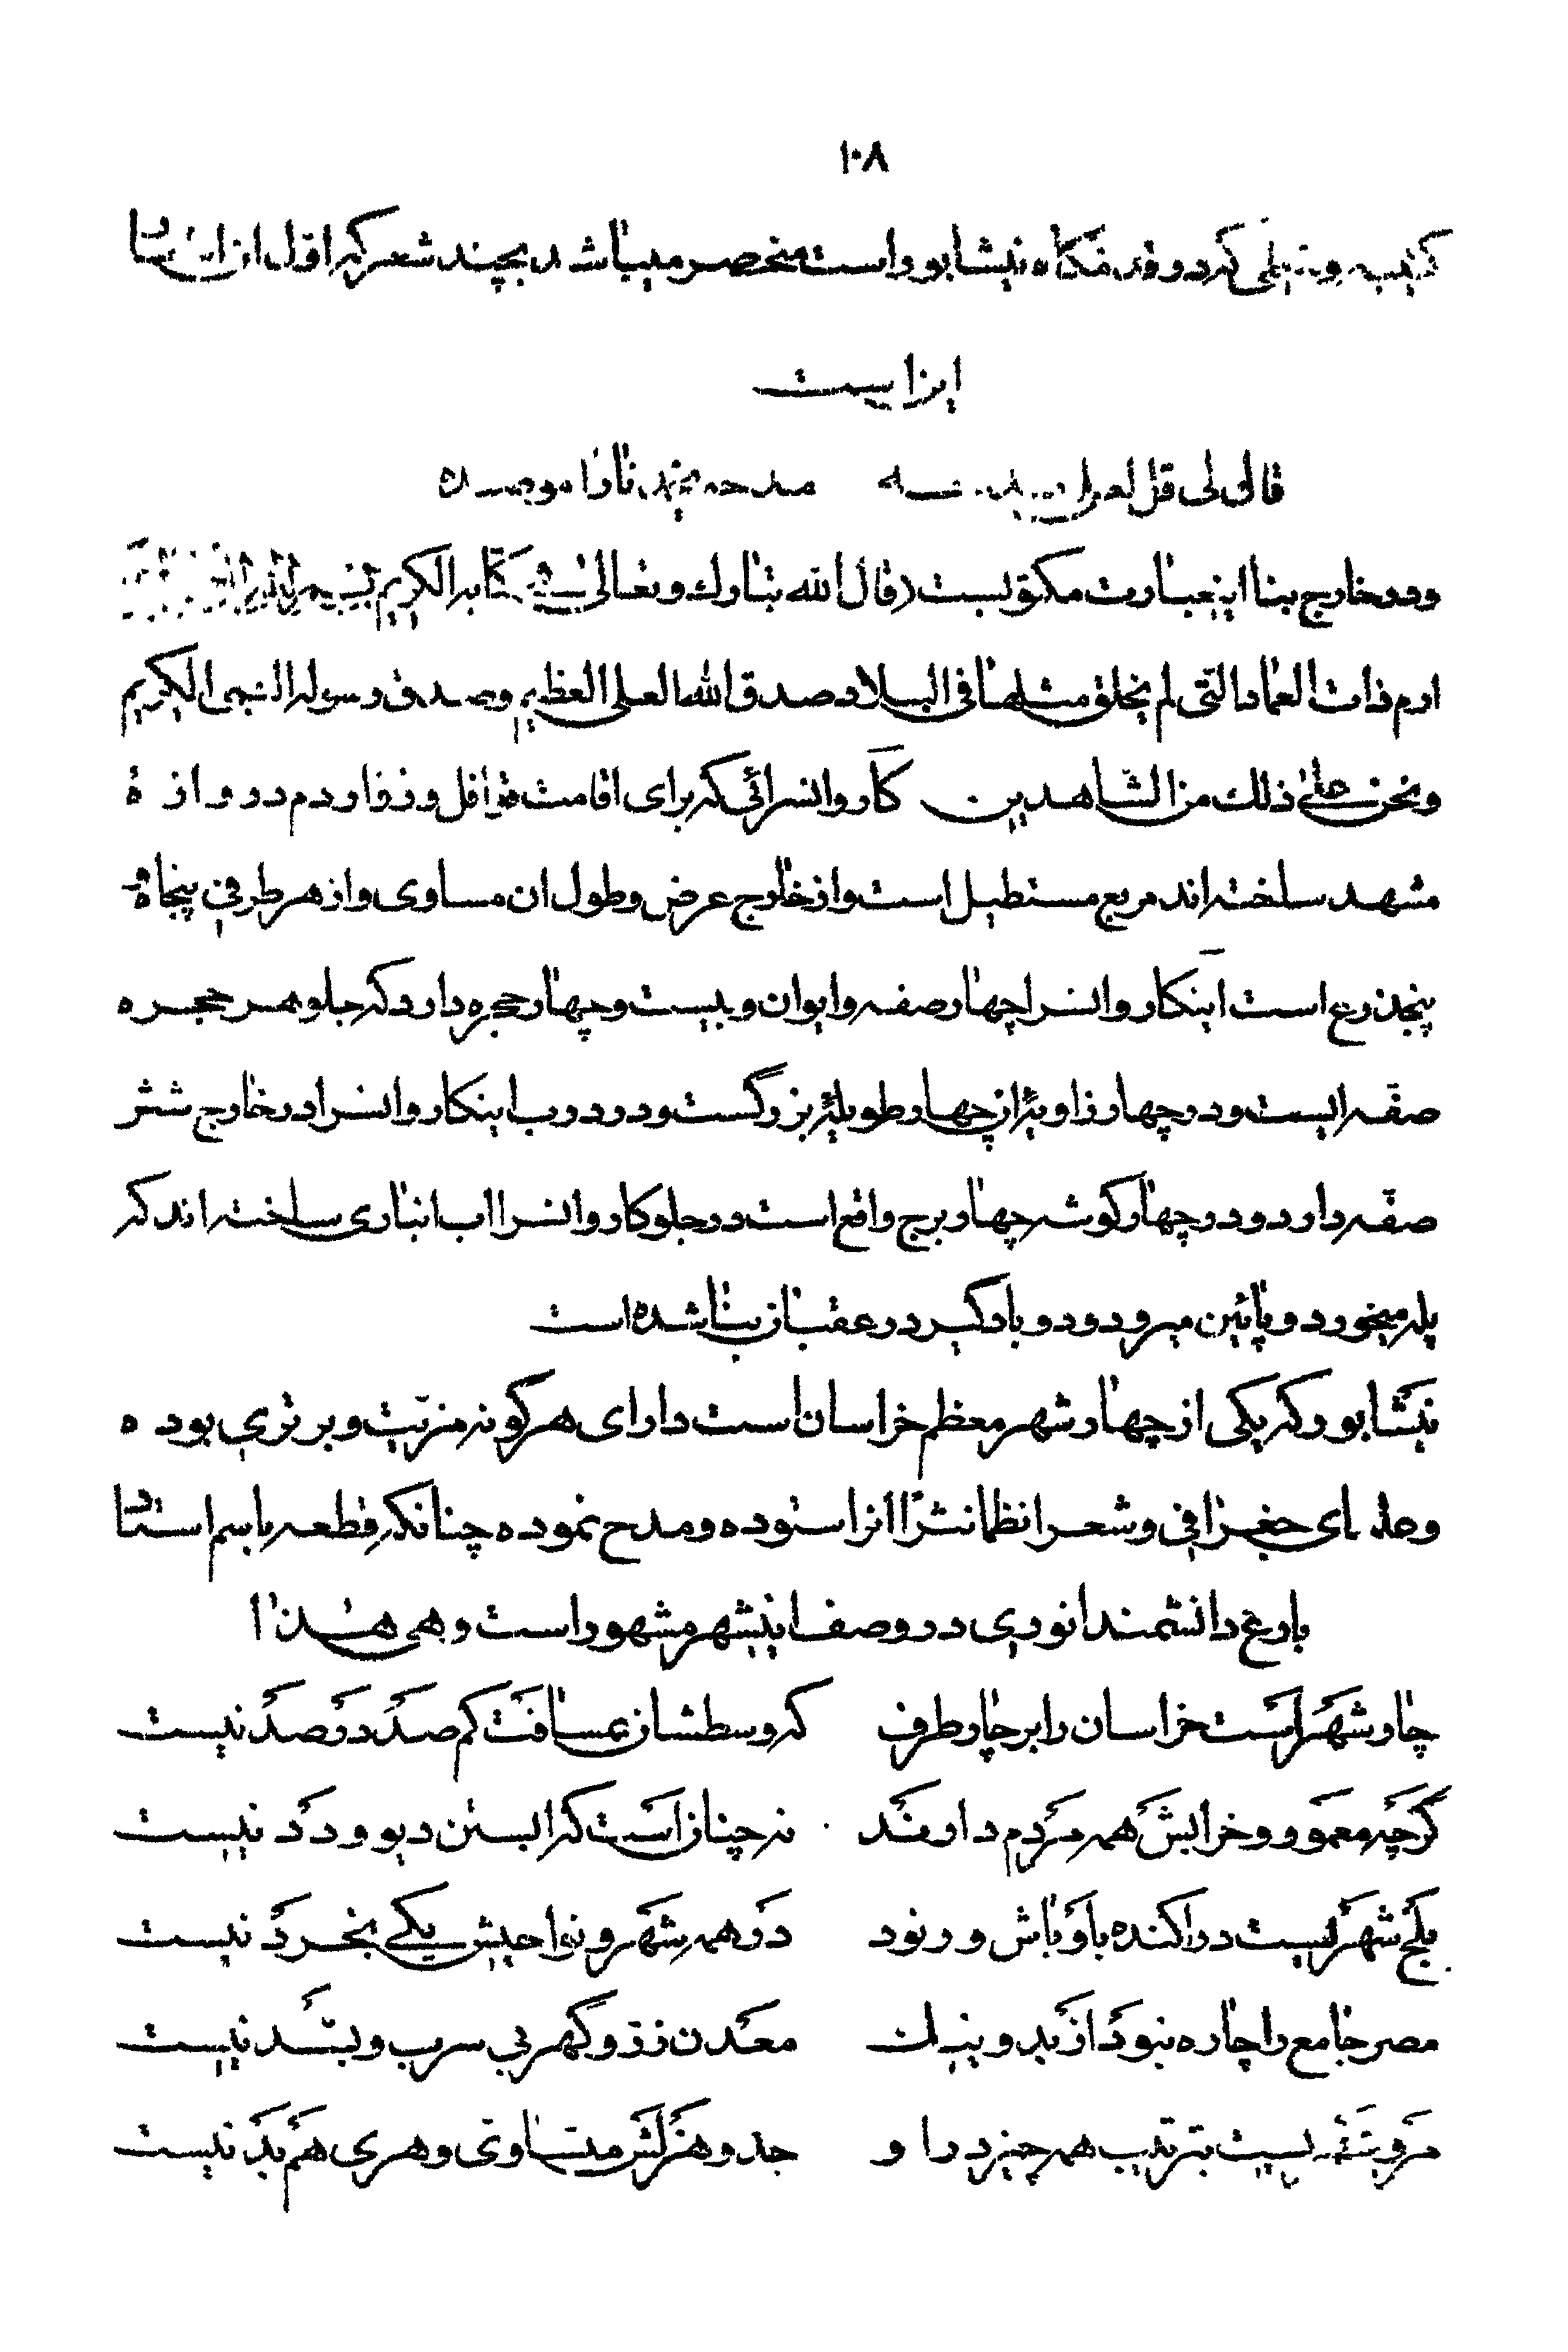 ۱۰۸
کتیبه که در قدمکاه نیشابور است منحصر میباشد بچند شعر که اوّل از این
این است
قال لی قل مدحه نارا موصده
و در خارج بنا اینعبارت مکتوبست (قال الله تبارك و تعالی فی کتابه الکریم بسم الله
ارم ذات العماد التّی لم یخلق مثلها فی البلاد صدق الله العلی العظیم و صدق رسوله النبی الکریم
و نحن علیٰ ذلك من الشّاهدین کاروانسرائی که برای اقامت قوافل و زوار دم دروازهٔ
مشهد ساخته اند مربع مستطیل است و از خارج عرض و طول ان مساوی و از هر طرفی پنجاه و
پنجذرع است اینکاروانسرا چهار صفه و ایوان و بیست و چهار حجره دارد که جلو هر حجره
صفّه ایست و در چهار زاویهٔ از چهار طویلهٔ بزرگست و در درب اینکاروانسرا در خارج شش
صفّه دارد و در چهار کوشه چهار برج واقع است در جلو کاروانسرا اب انباری ساخته اند که
پله میخورد و پائین میرود و دو بادگیر در عقب ان بنا شده است
نیشابور که یکی از چهار شهر معظم خراسان است دارای هر کونه مزیّت و برتری بوده
و علمای جغرافی و شعرا نظما نثرًا انرا ستوده و مدح نموده چنانکه قطعه باسم استاد
بارع دانشمند انوری در وصف اینشهر مشهور است و هی هٰذا
چار شهر است خراسان را بر چار طرف که وسطشان بمسافت کم صد در صد نیست
گرچه معمور و خرابش همه مردم دارند نه چنان است که ابستن دیو و دد نیست
بلخ شهریست در اکنده باوباش و رنود در همه شهر و نواحیش یکی بخرد نیست
مصر جامع را چاره نبود از بد و نیك معدن زر و گهر بی سرب و بسّد نیست
مرو بترتیب همه چیز در او جد و هزلش متساوی و هری هم بد نیست